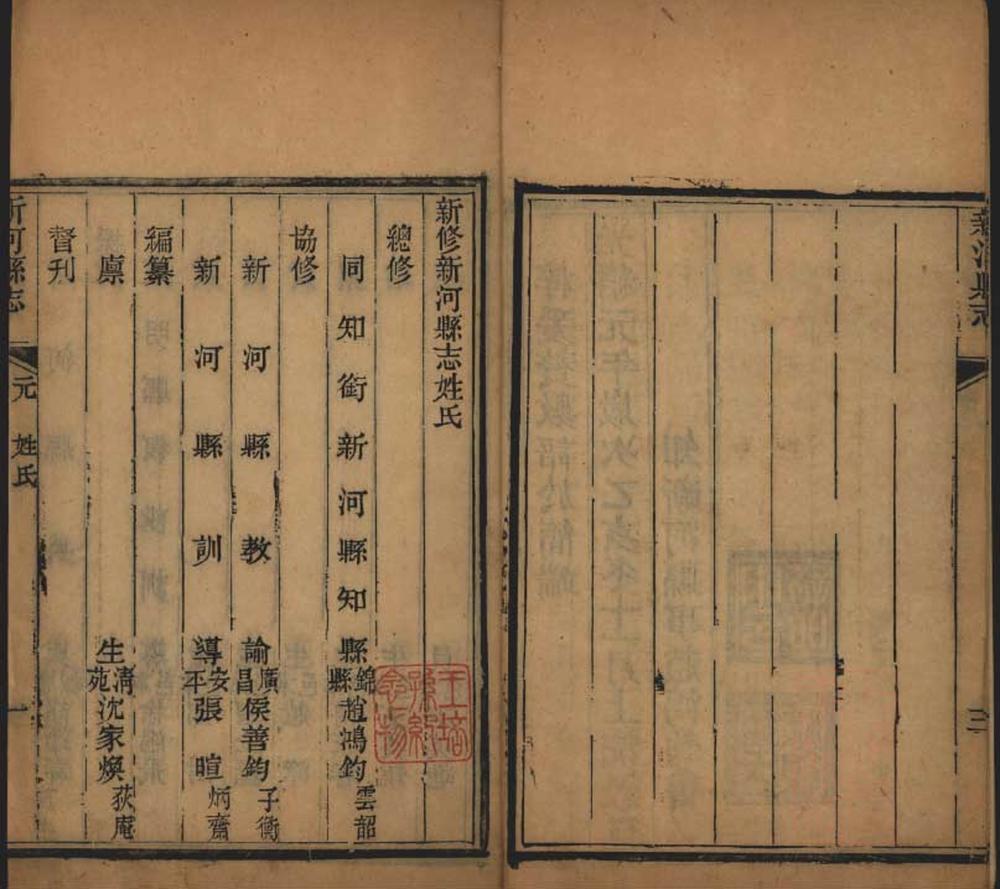 新河縣志
三
新修新河縣志姓氏
總修
同知銜新河縣知縣錦縣趙鴻鈞雲韶
協修
新河縣教諭廣昌侯善鈞子衡
新河縣訓導安平張暄炳齋
編纂
廩生清苑沈家煥荻庵
督刊
新河縣志 元 姓氏 一